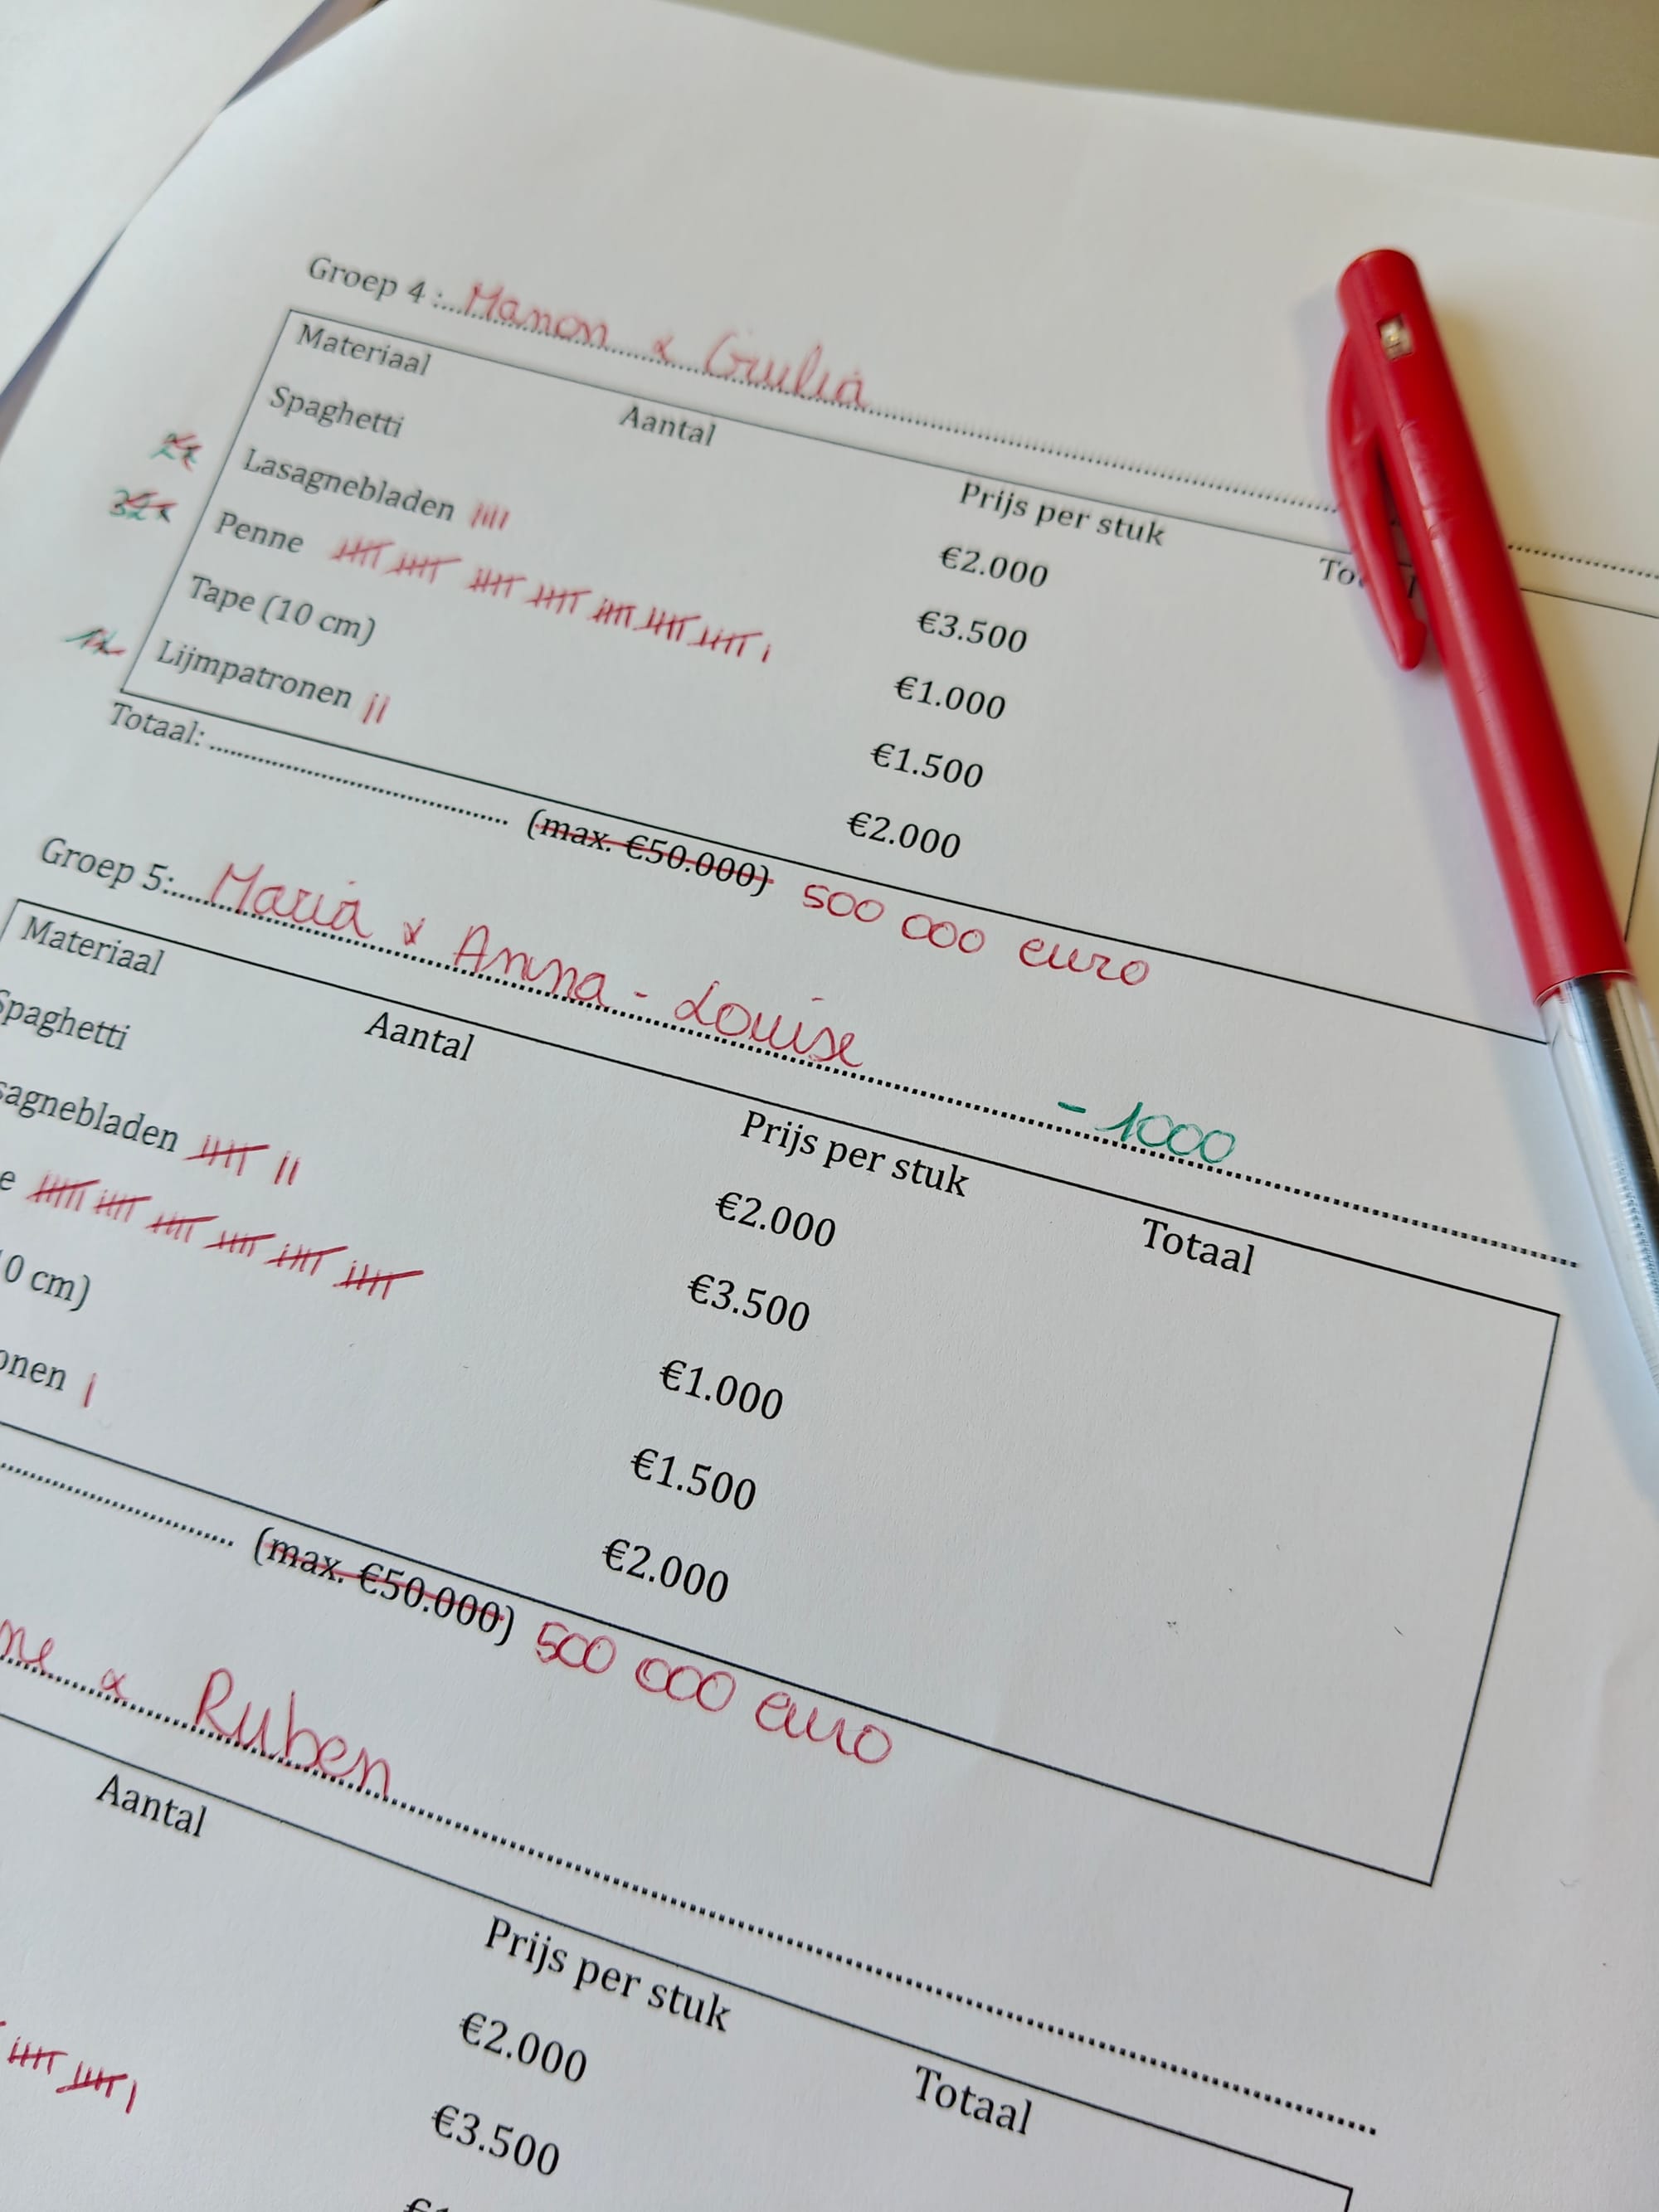 Groep 4 : Manon & Giulia
Materiaal Aantal Prijs per stuk
Spaghetti €2.000
Lasagnebladen €3.500
Penne €1.000
Tape (10 cm) €1.500
Lijmpatronen €2.000
Totaal: (max. €50.000) 500 000 euro
Groep 5: Maria & Anna-Louise - 1000
Materiaal Aantal Prijs per stuk Totaal
Spaghetti €2.000
sagnebladen €3.500
e €1.000
0 cm) €1.500
onen €2.000
(max. €50.000) 500 000 euro
ne & Ruben
Aantal Prijs per stuk Totaal
€2.000
€3.500